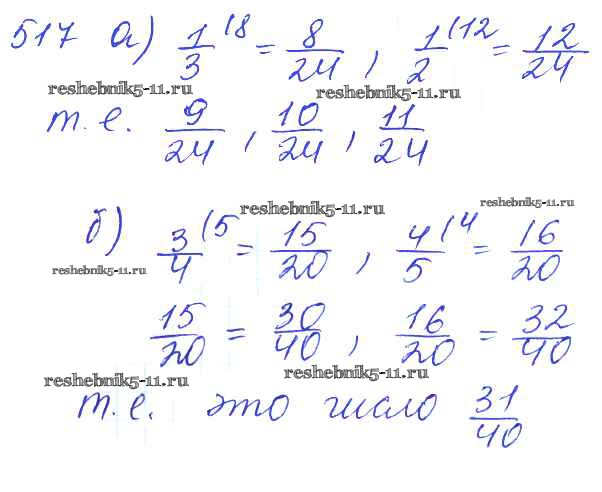 517 а) 1/3 (8 = 8/24 , 1/2 (12 = 12/24
reshebnik5-11.ru reshebnik5-11.ru
т.е. 9/24 , 10/24 , 11/24
reshebnik5-11.ru reshebnik5-11.ru
б) 3/4 (5 = 15/20 , 4/5 (4 = 16/20
reshebnik5-11.ru
15/20 = 30/40 , 16/20 = 32/40
reshebnik5-11.ru reshebnik5-11.ru
т.е. это число 31/40